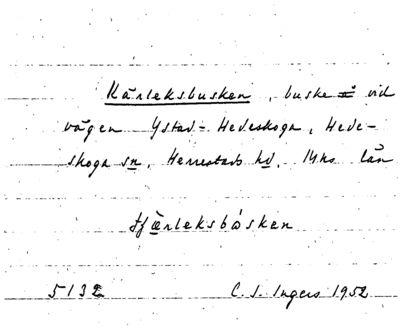 Kärleksbusken, buske vid
vägen Ystad - Hedeskoga, Hede-
skoga sn, Herrestads hd, Mhs län
tjǽrleksbȧsken
5132 C. I. Ingers 1952